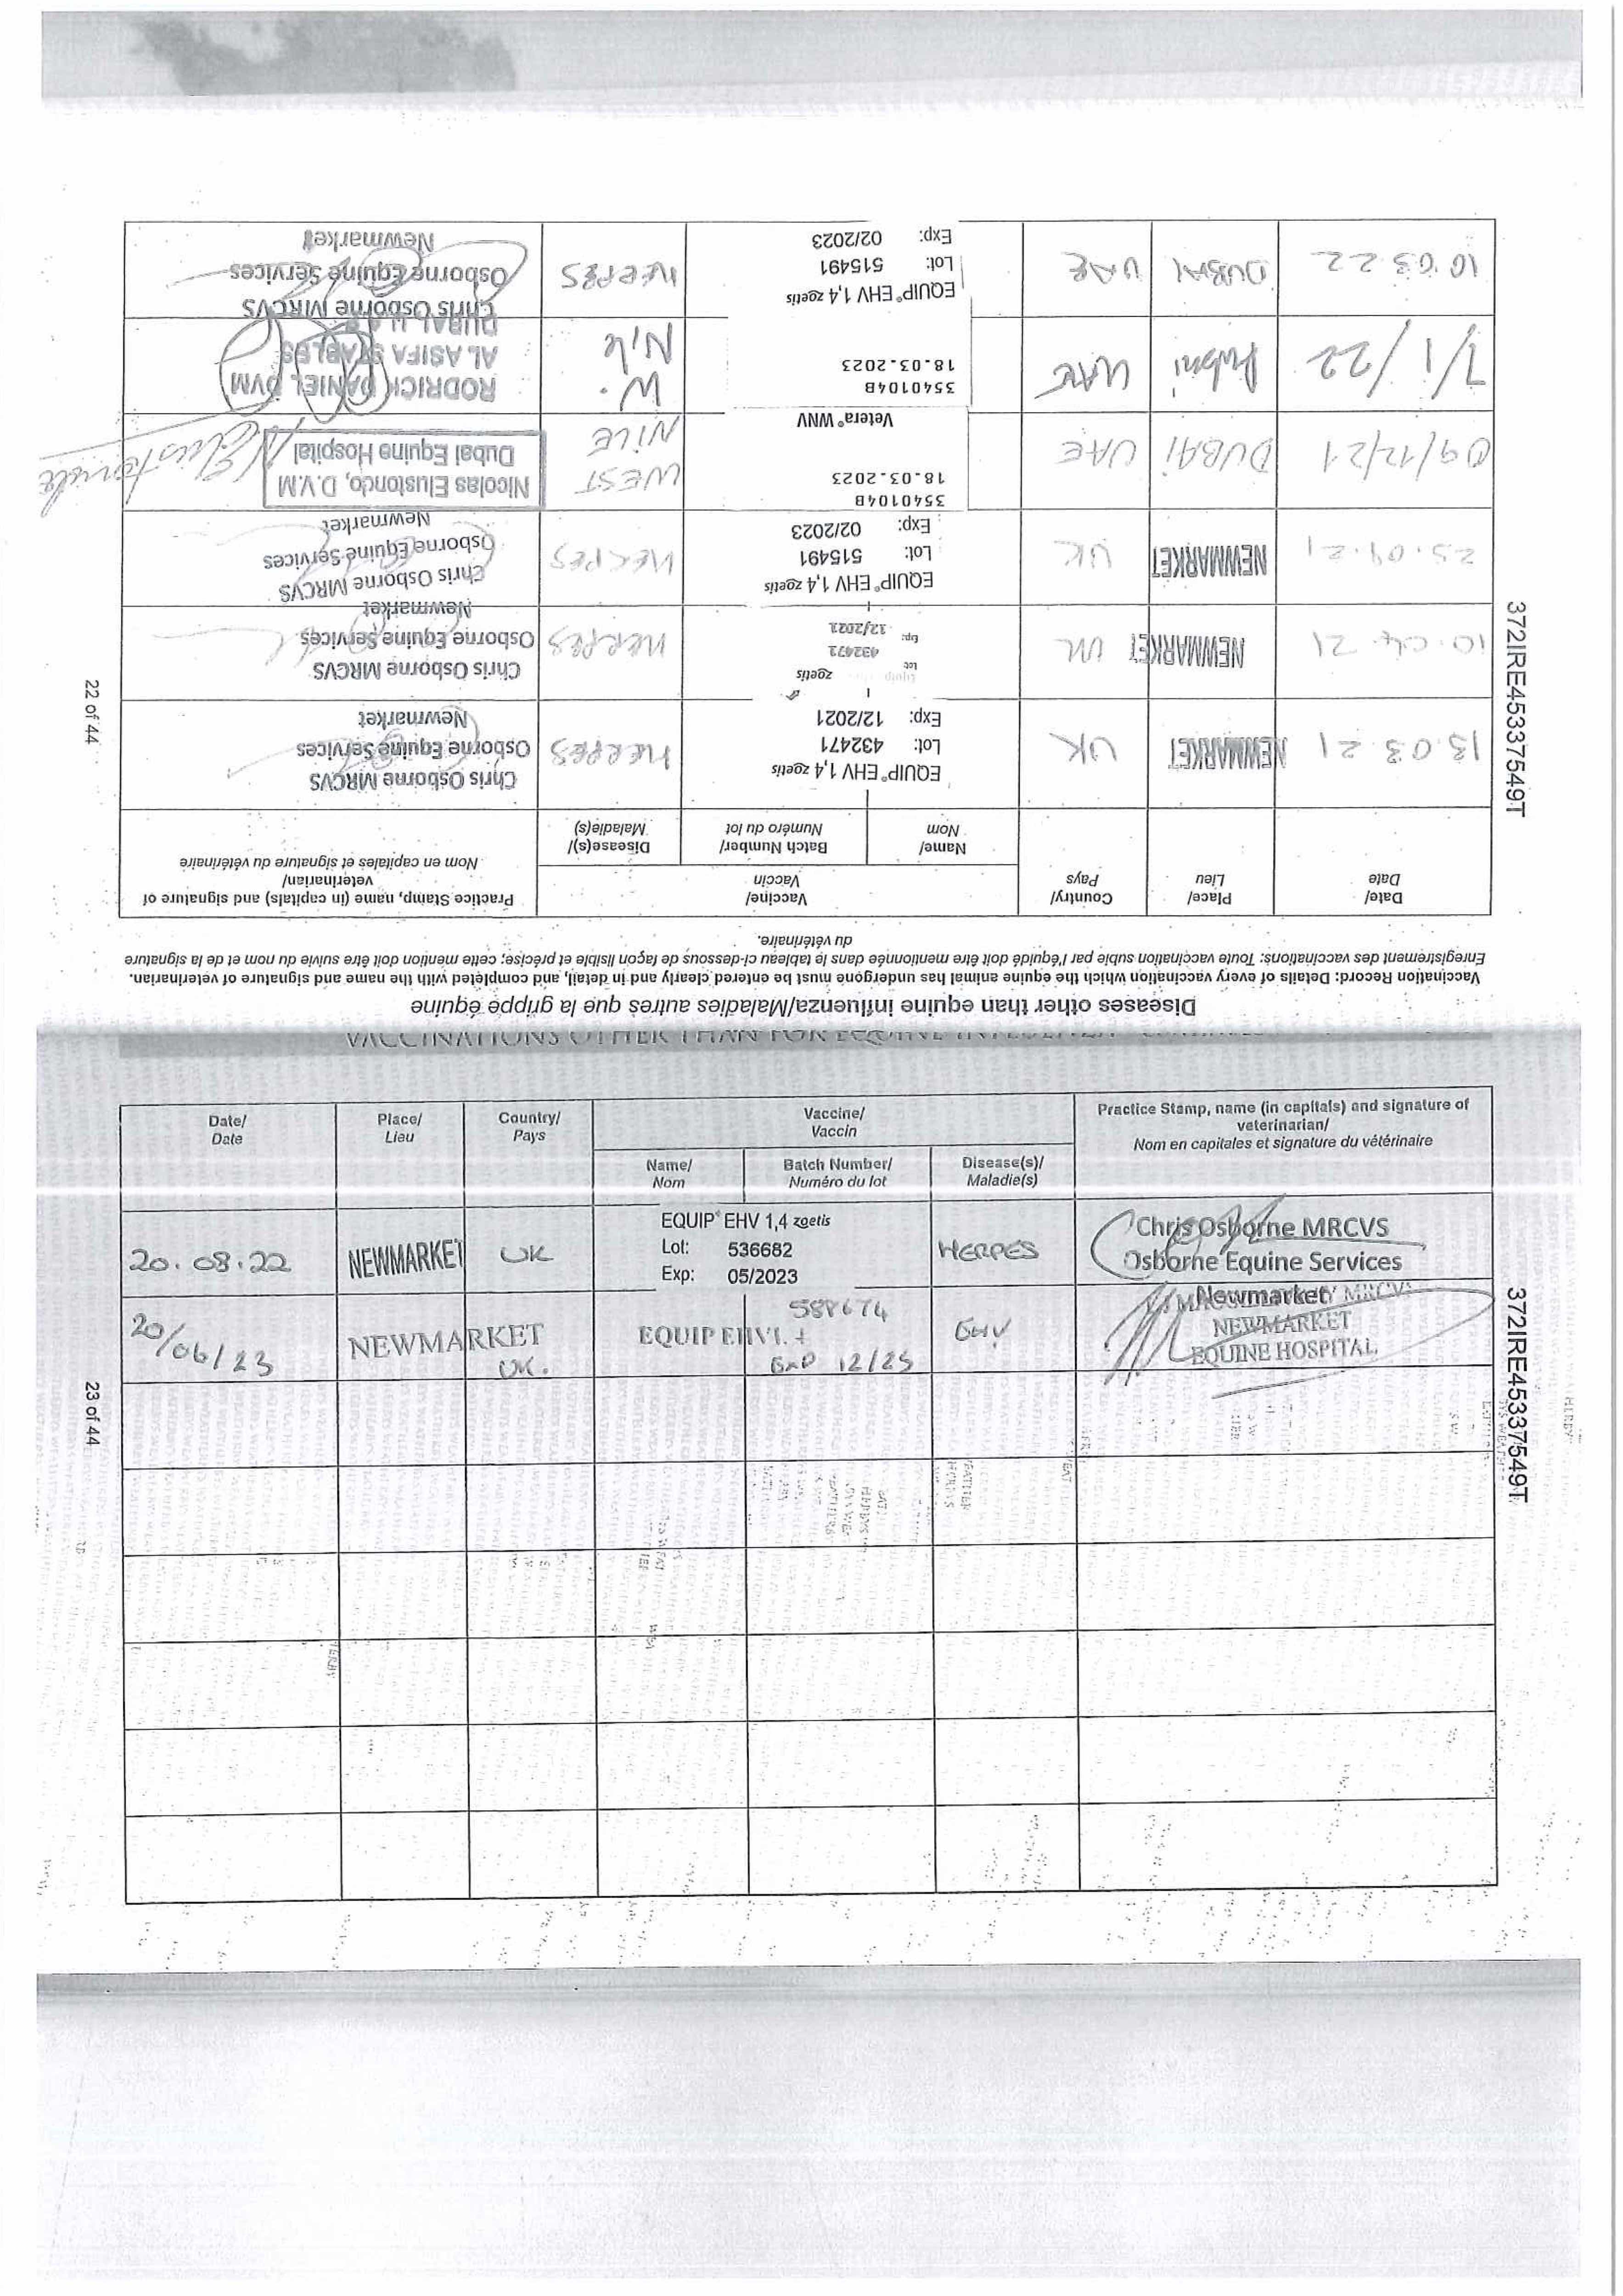 Diseases other than equine influenza/Maladies autres que la grippe équine
Vaccination Record: Details of every vaccination which the equine animal has undergone must be entered clearly and in detail, and completed with the name and signature of veterinarian.
Enregistrement des vaccinations: Toute vaccination subie par l'équidé doit être mentionnée dans le tableau ci-dessous de façon lisible et précise; cette mention doit être suivie du nom et de la signature
du vétérinaire.
Date/
Date
Place/
Lieu
Country/
Pays
Vaccine/
Vaccin
Practice Stamp, name (in capitals) and signature of
veterinarian/
Nom en capitales et signature du vétérinaire
Name/
Nom
Batch Number/
Numéro du lot
Disease(s)/
Maladie(s)
13.03.21
NEWMARKET
UK
EQUIP® EHV 1,4 zoetis
Lot: 432471
Exp: 12/2021
HERPES
Chris Osborne MRCVS
Osborne Equine Services
Newmarket
10.04.21
NEWMARKET
UK
Equip zoetis
Lot 432471
Exp: 12/2021
HERPES
Chris Osborne MRCVS
Osborne Equine Services
Newmarket
25.09.21
NEWMARKET
UK
EQUIP® EHV 1,4 zoetis
Lot: 515491
Exp: 02/2023
HERPES
Chris Osborne MRCVS
Osborne Equine Services
Newmarket
09/12/21
DUBAI
UAE
3540104B
18.03.2023
WEST
NILE
Nicolas Elustondo, D.V.M
Dubai Equine Hospital
7/1/22
Dubai
UAE
Vetera® WNV
3540104B
18.03.2023
W.
Nile
RODRICK DANIEL DVM
AL ASIFA STABLES
DUBAI
10.03.22
DUBAI
UAE
EQUIP® EHV 1,4 zoetis
Lot: 515491
Exp: 02/2023
HERPES
Chris Osborne MRCVS
Osborne Equine Services
Newmarket
22 of 44
372IRE45337549T
VACCINATIONS OTHER THAN FOR EQUINE
Date/
Date
Place/
Lieu
Country/
Pays
Vaccine/
Vaccin
Practice Stamp, name (in capitals) and signature of
veterinarian/
Nom en capitales et signature du vétérinaire
Name/
Nom
Batch Number/
Numéro du lot
Disease(s)/
Maladie(s)
20.08.22
NEWMARKET
UK
EQUIP® EHV 1,4 zoetis
Lot: 536682
Exp: 05/2023
HERPES
Chris Osborne MRCVS
Osborne Equine Services
Newmarket
20/06/23
NEWMARKET
UK.
EQUIP EHV1.4
588674
EXP 12/25
EHV
MRCVS
NEWMARKET
EQUINE HOSPITAL
23 of 44
372IRE45337549T